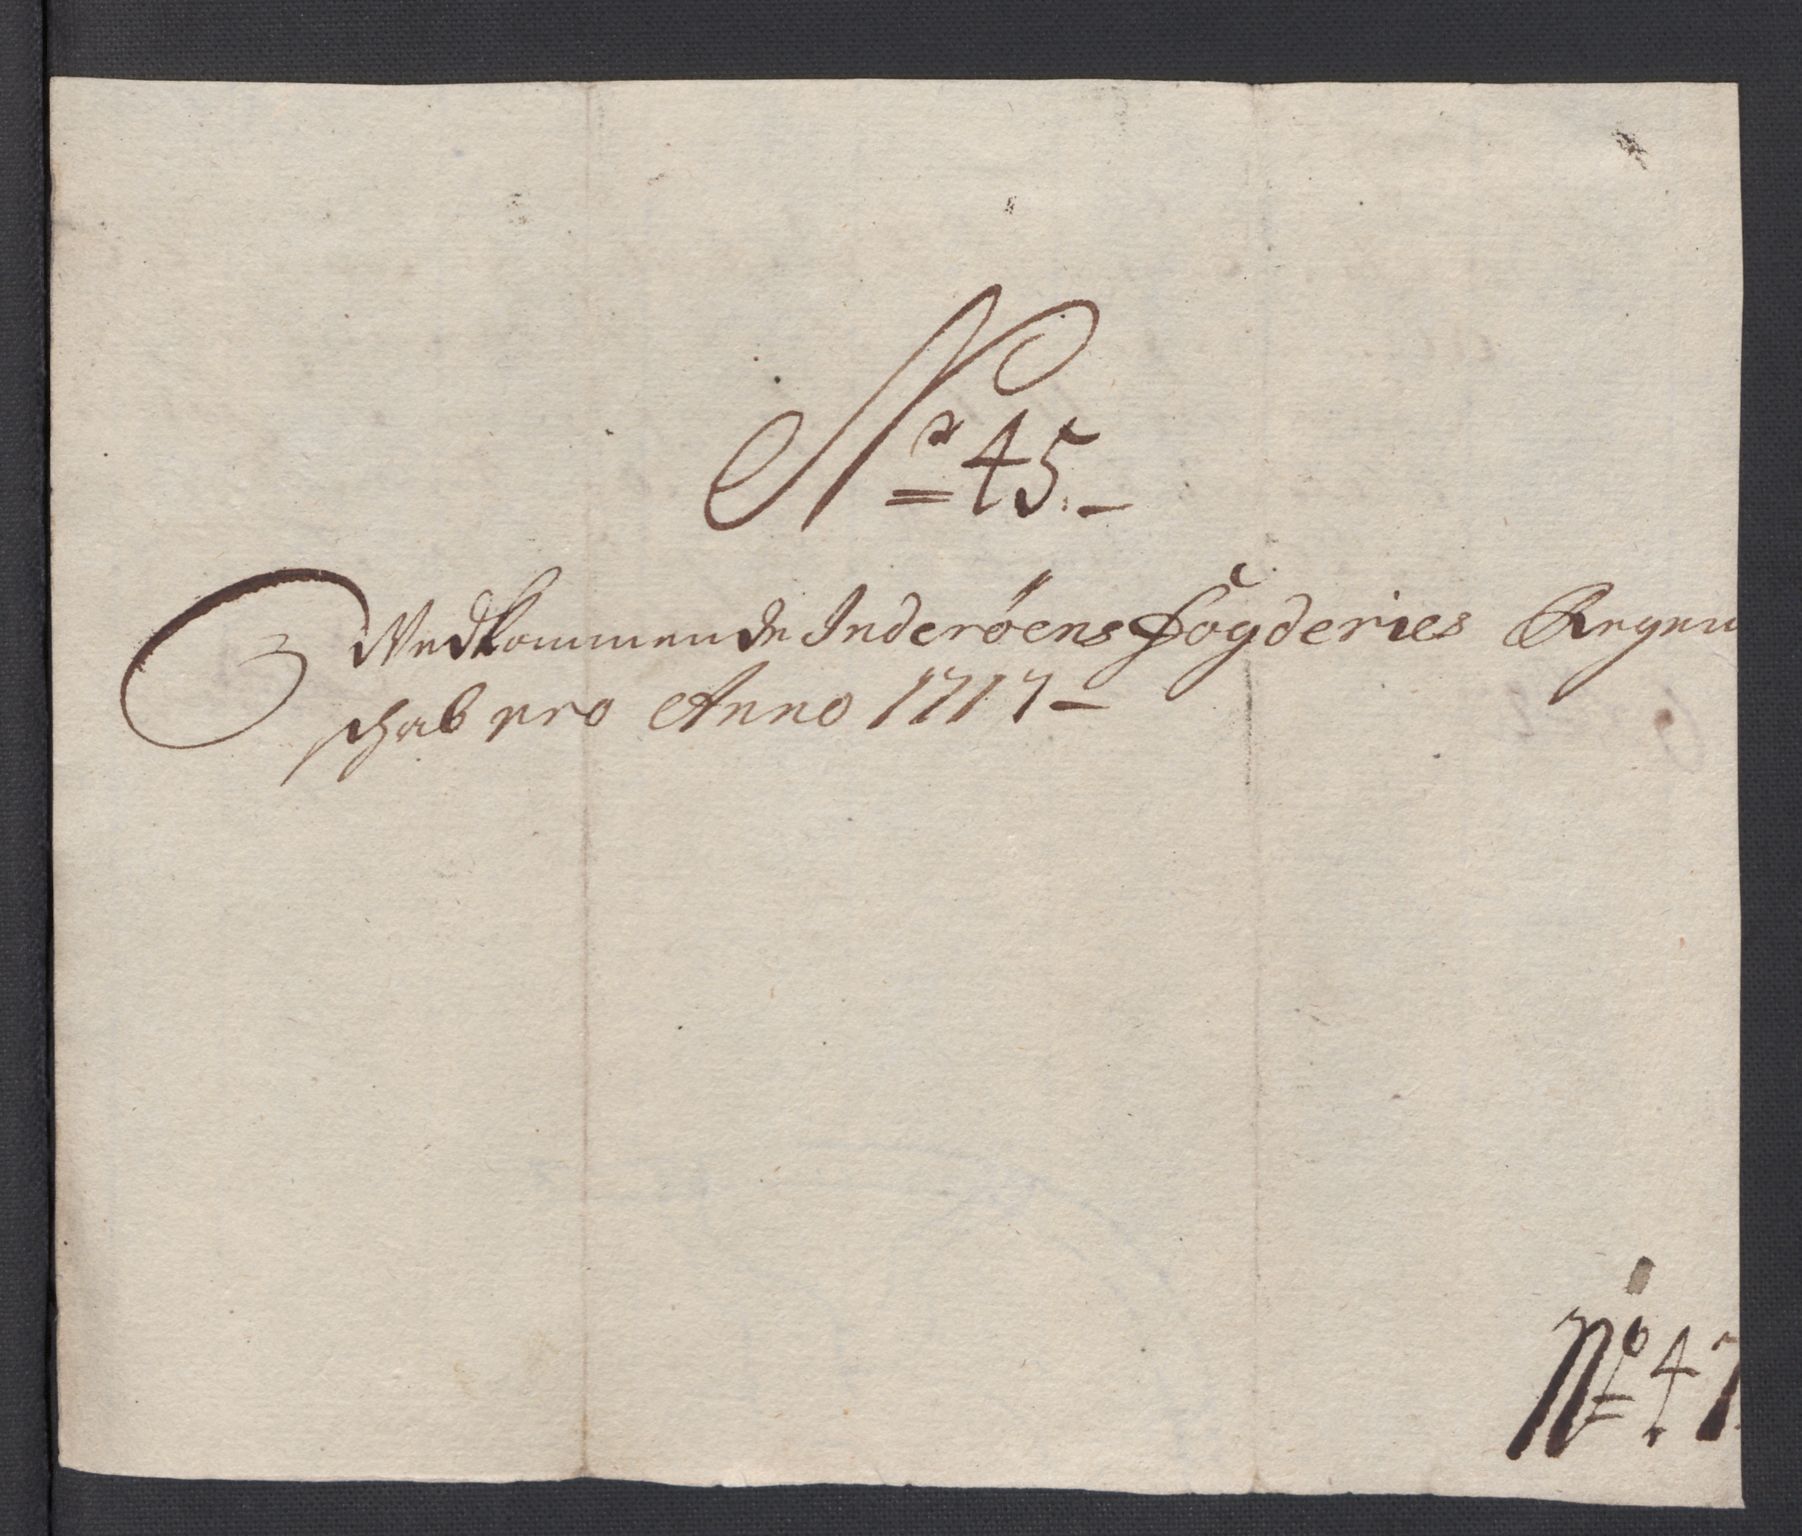 No 45.-
Vedkommende Inderöens Fogderies Regen
schab pro Anno 1717-
No 47